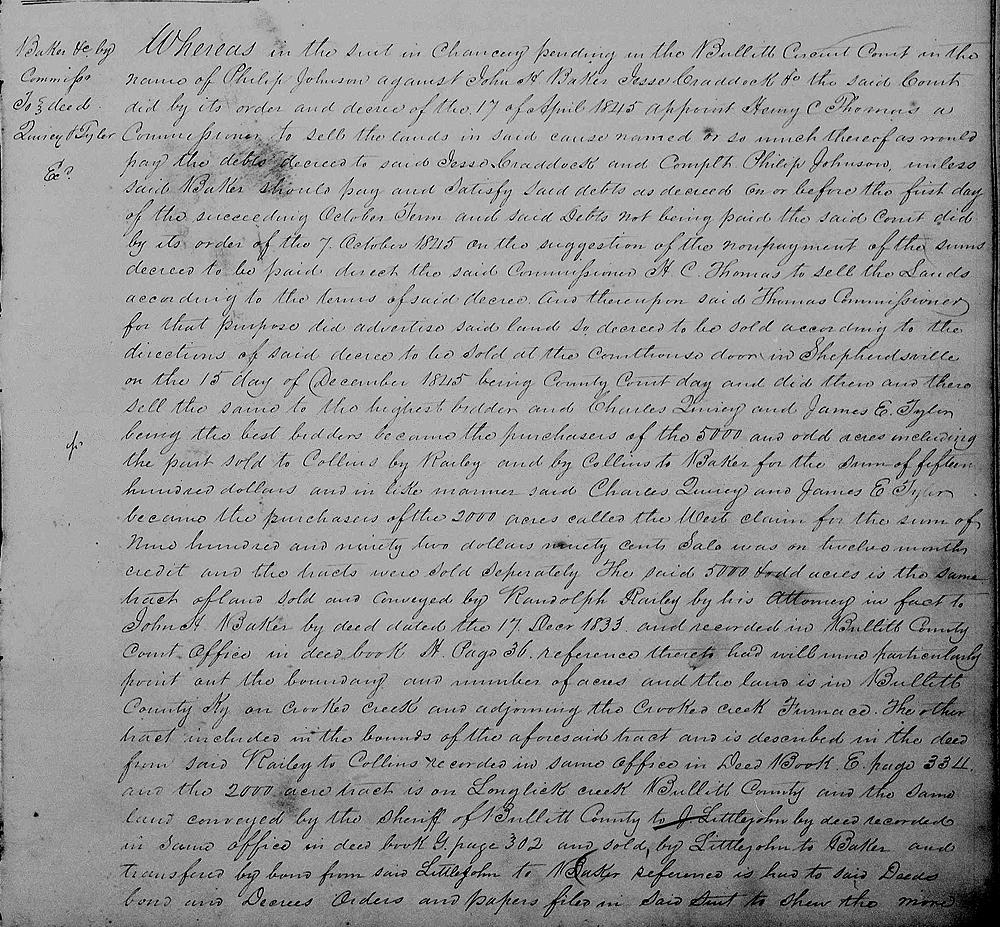 Baker &c by
Commisso
To } deed
Quirey & Tyler
&c
Whereas in the suit in Chancery pending in the Bullitt Circuit Court in the
name of Philip Johnson against John H Baker Jesse Craddock &c the said Court
did by its order and decree of the 17 of April 1845 appoint Henry C Thomas a
Commissioner to sell the lands in said cause named or so much thereof as would
pay the debts decreed to said Jesse Craddock and Complt Philip Johnson, unless
said Baker should pay and satisfy said debts as decreed on or before the first day
of the succeeding October Term and said Debts not being paid the said Court did
by its order of the 7. October 1845 on the suggestion of the nonpayment of the sums
decreed to be paid direct the said Commissioner H. C. Thomas to sell the Lands
according to the terms of said decree. And thereupon said Thomas Commissioner
for that purpose did advertise said land so decreed to be sold according to the
directions of said decree to be sold at the Courthouse door in Shepherdsville
on the 15 day of December 1845 being County Court day and did then and there
sell the same to the highest bidder and Charles Quirey and James E. Tyler
being the best bidders became the purchasers of the 5000 and odd acres including
the part sold to Collins by Railey and by Collins to Baker for the sum of fifteen
hundred dollars and in like manner said Charles Quirey and James E Tyler
became the purchasers of the 2000 acres called the West claim for the sum of
Nine hundred and ninety two dollars ninety cents Sale was on twelve months
credit and the tracts were sold Seperately The said 5000 & odd acres is the same
tract of land sold and conveyed by Randolph Railey by his Attorney in fact to
John H Baker by deed dated the 17. Decr 1833. and recorded in Bullitt County
Court Office in deed book H. Page 36. reference thereto had will more particularly
point out the boundary and number of acres and the land is in Bullitt
County Ky on Crooked creek and adjoining the Crooked creek Furnace. The other
tract included in the bounds of the aforesaid tract and is described in the deed
from said Railey to Collins recorded in same office in Deed Book. E. page 334.
and the 2000 acre tract is on Longlick creek Bullitt County and the same
land conveyed by the Sheriff of Bullitt County to J Littlejohn by deed recorded
in same office in deed book G. page 302 and sold by Littlejohn to Baker and
transfered by bond from said Littlejohn to Baker reference is had to said Deeds
bond and Decrees Orders and papers filed in said suit to shew the more